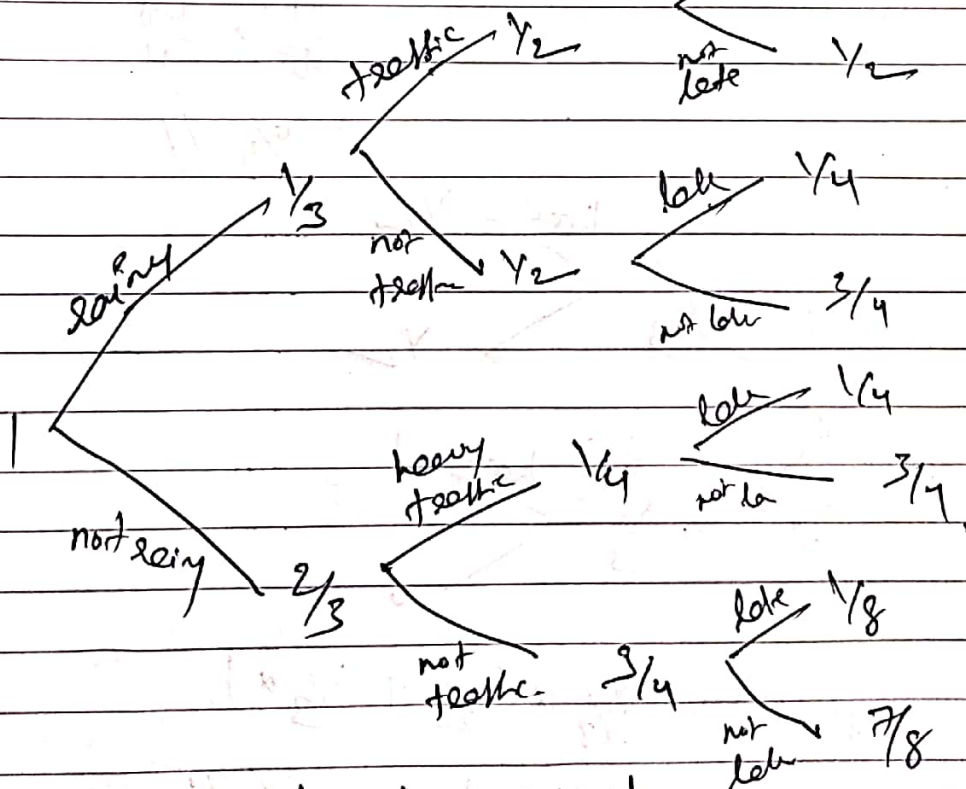 traffic 1/2
not
late 1/2
late 1/4
rainy 1/3
not
traffic 1/2
not late 3/4
late 1/4
1
heavy
traffic 1/4
not la 3/4
not rainy 2/3
late 1/8
not
traffic. 3/4
not
late 7/8